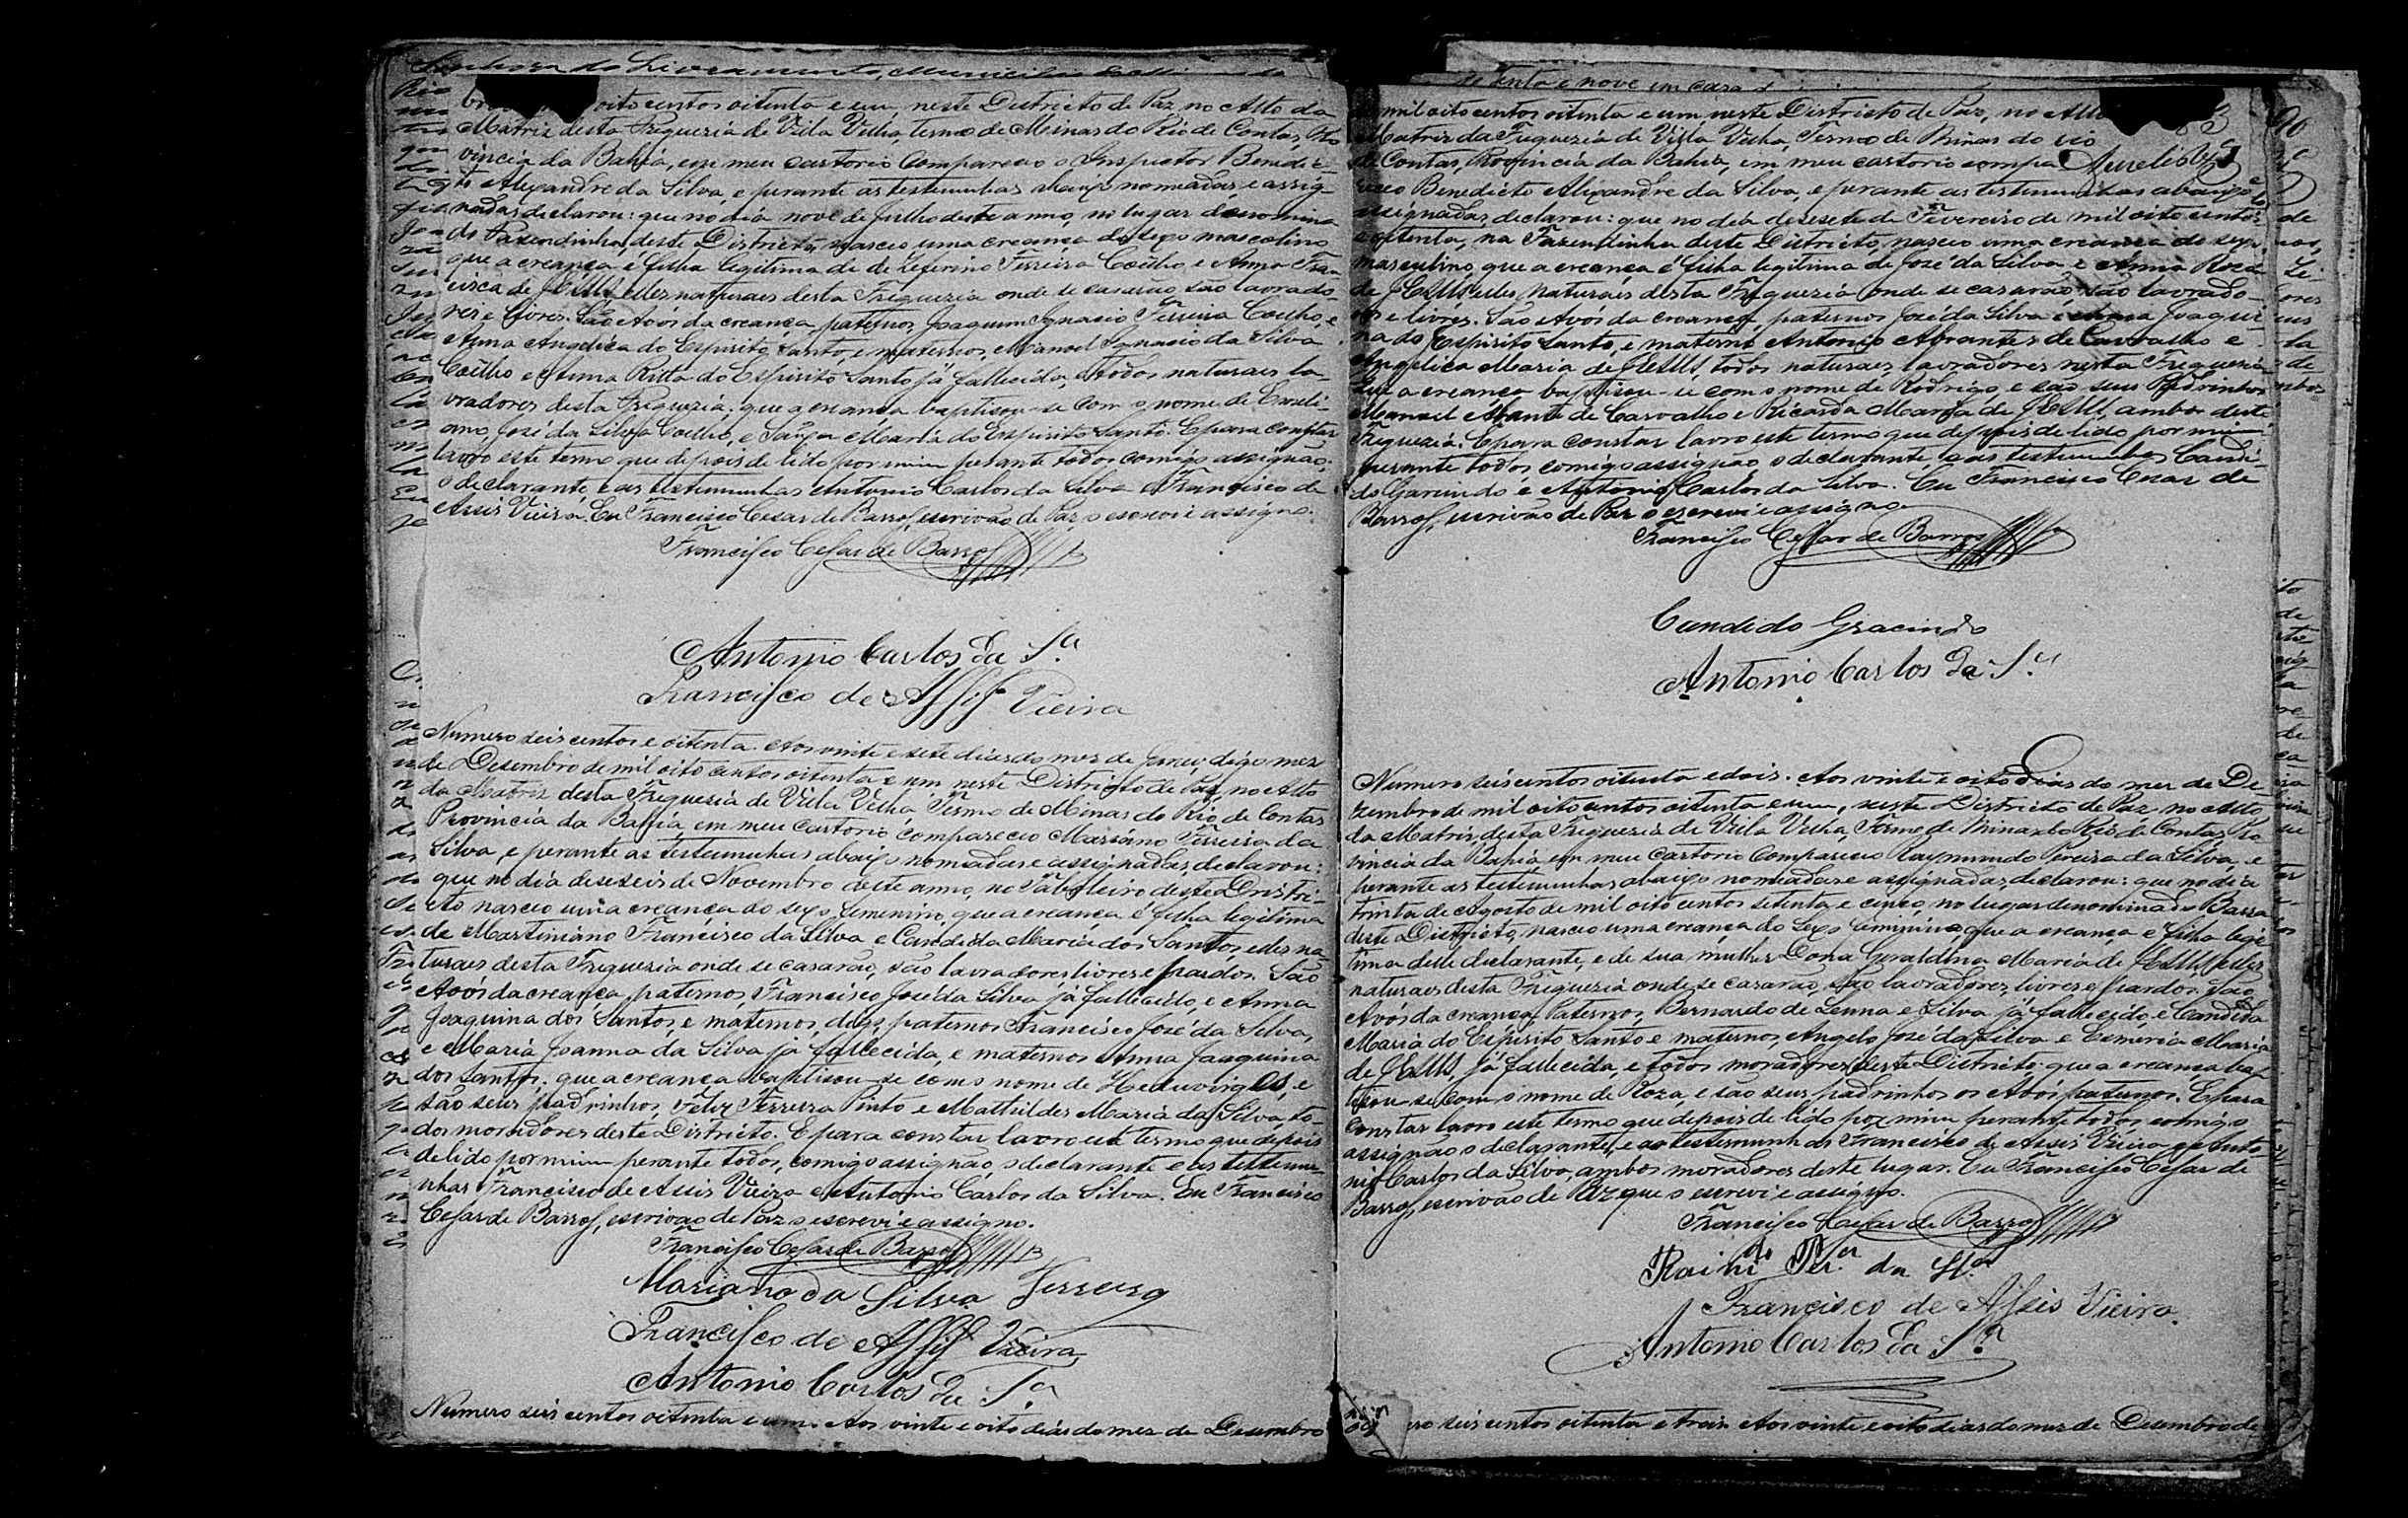 oito centos oitenta e um, neste Districto de Paz, no Alto da
Matriz desta Freguezia de Villa Velha, termo de Minas do Rio de Contas, Pro
vincia da Bahia, em meu cartorio Compareceo o Inspector Benedic-
to Alexandre da Silva, e perante as testemunhas abaixo nomeadas e assig-
nadas declarou: que no dia nove de Julho deste anno, no lugar denomina
do Fazendinha, deste Districto, nasceo uma creança do sexo mascolino
que a creança é filha legitima de de Zeferino Ferreira Coêlho e Anna Fran
cisca de JESUS, elles naturaes desta Freguezia onde se casarão são lavrado-
res e livres. São Avós da creança, paternos, Joaquim Ignacio Ferreira Coelho, e
Anna Angelica do Espirito Santo, e maternos, Manoel Ignacio da Silva
Coêlho e Anna Ritta do Espirito Santo já fallecida, e todos naturaes la-
vradores desta Freguezia. que a creança baptisou-se com o nome de
José da Silva Coelho, e Maria do Espirito Santo. E para constar
lavro este termo que depois de lido por mim perante todos comigo assignão,
o declarante e as testemunhas Antonio Carlos da Silva e Francisco de
Assis Vieira. Eu Francisco Cesar de Barros, escrivão de Paz o escrevi e assigno.
Francisco Cesar de Barros
Antonio Carlos da S.ª
Francisco de Assis Vieira
Numero seis centos e oitenta. Aos vinte e sete dias do mez de Janei, digo mez
de Desembro de mil oito centos oitenta e um neste Districto de Paz, no Alto
da Matriz desta Freguezia de Villa Velha Termo de Minas do Rio de Contas
Provincia da Bahia, em meu Cartorio compareceo Marciano Ferreira da
Silva, e perante as testemunhas abaixo nomeadas e assignadas, declarou:
que no dia deseseis de Novembro deste anno, no Taboleiro deste Distri-
cto nasceo uma creança do sexo femenino, que a creança é filha legitima
de Martiniano Francisco da Silva e Candida Maria dos Santos, elles na-
turaes desta Freguezia onde se casarão, são lavradores livres e pardos. São
Avós da creança, paternos, Francisco José da Silva já fallecido, e Anna
Joaquina dos Santos, e maternos, digo, paternos Francisco José da Silva,
e Maria Joanna da Silva já fallecida, e maternos Anna Joaquina
dos Santos. que a creança baptisou-se com o nome de Heduviges, e
são seus padrinhos, Felix Ferreira Pinto e Mathildes Maria da Silva, to-
dos moradores deste Districto. E para constar lavro este termo que depois
de lido por mim perante todos, comigo assignão, o declarante e as testemu-
nhas Francisco de Assis Vieira e Antonio Carlos da Silva. Eu Francisco
Cesar de Barros, escrivão de Paz o escrevi e assigno.
Francisco Cesar de Barros
Mariano da Silva Ferreira
Francisco de Assis Vieira
Antonio Carlos da S.ª
Numero seis centos oitenta e um. Aos vinte e oito dias do mez de Desembro
tenta e nove em casa
mil oito centos oitenta e um, neste Districto de Paz, no Alto
Matriz da Freguezia de Villa Velha, Termo de Minas do Rio
de Contas, Provincia da Bahia, em meu cartorio compa
receo Benedicto Alexandre da Silva, e perante as testemunhas abaixo
assignadas, declarou: que no dia desesete de Fevereiro de mil oito centos
e oitenta, na Fazendinha deste Districto, nasceo uma creança do sexo
masculino, que a creança é filha legitima de José da Silva e Anna Roza
de JESUS elles naturaes desta Freguezia onde se casarão, são lavrado-
res e livres. São Avós da creança, paternos José da Silva e Joaqui-
na do Espirito Santo, e materno Antonio Abrantes de Carvalho e
Angelica Maria de JESUS, todos naturaes lavradores nesta Freguezia
Que a creança baptisou-se com o nome de Rodrigo, e são seus Padrinhos
Manoel Abrante de Carvalho e Ricarda Maria de JESUS, ambos desta
Freguezia. E para constar lavro este termo que depois de lido por mim
perante todos, comigo assignão, o declarante, e as testemunhas Candi-
do Garcindo e Antonio Carlos da Silva. Eu Francisco Cesar de
Barros, escrivão de Paz o escrevi e assigno
Francisco Cesar de Barros
Candido Gracindo
Antonio Carlos da S.ª
Numero seis centos oitenta e dois. Aos vinte e oito Dias do mez de De
zembro de mil oito centos oitenta e um, neste Districto de Paz, no Alto
da Matriz, desta Freguezia de Villa Velha, Termo de Minas do Rio de Contas, Pro
vincia da Bahia, em meu Cartorio Compareceo Raymundo Pereira da Silva, e
perante as testemunhas abaixo nomeadas e assignadas, declarou: que no dia
trinta de Agosto de mil oito centos setenta e cinco, no lugar denominado Barra
deste Districto, nasceo uma creança do sexo Feminino, que a creança é filha legi
tima delle declarante, e de sua mulher Dona Geraldina Maria de JESUS, elles
naturaes desta Freguezia onde se casarão, são lavradores, livres e pardos. São
Avós da creança, Paternos, Bernardo de Senna e Silva já fallecido, e Candida
Maria do Espirito Santo e maternos, Angelo José da Silva e Esmeria Maria
de JESUS, já fallecida, e todos moradores deste Districto. que a creança bap
tisou-se com o nome de Roza, e são seus padrinhos os Avós paternos. E para
constar lavro este termo que depois de lido por mim perante todos, comigo
assignão o declarante, e as testemunhas Francisco de Assis Vieira e Anto-
nio Carlos da Silva, ambos moradores deste lugar. Eu Francisco Cesar de
Barros, escrivão de Paz que o escrevi e assigno.
Francisco Cesar de Barros
Raimdo Per.ª da S.ª
Francisco de Assis Vieira.
Antonio Carlos da S.ª
seis centos oitenta e trez. Aos vinte e oito dias do mez de Desembro de